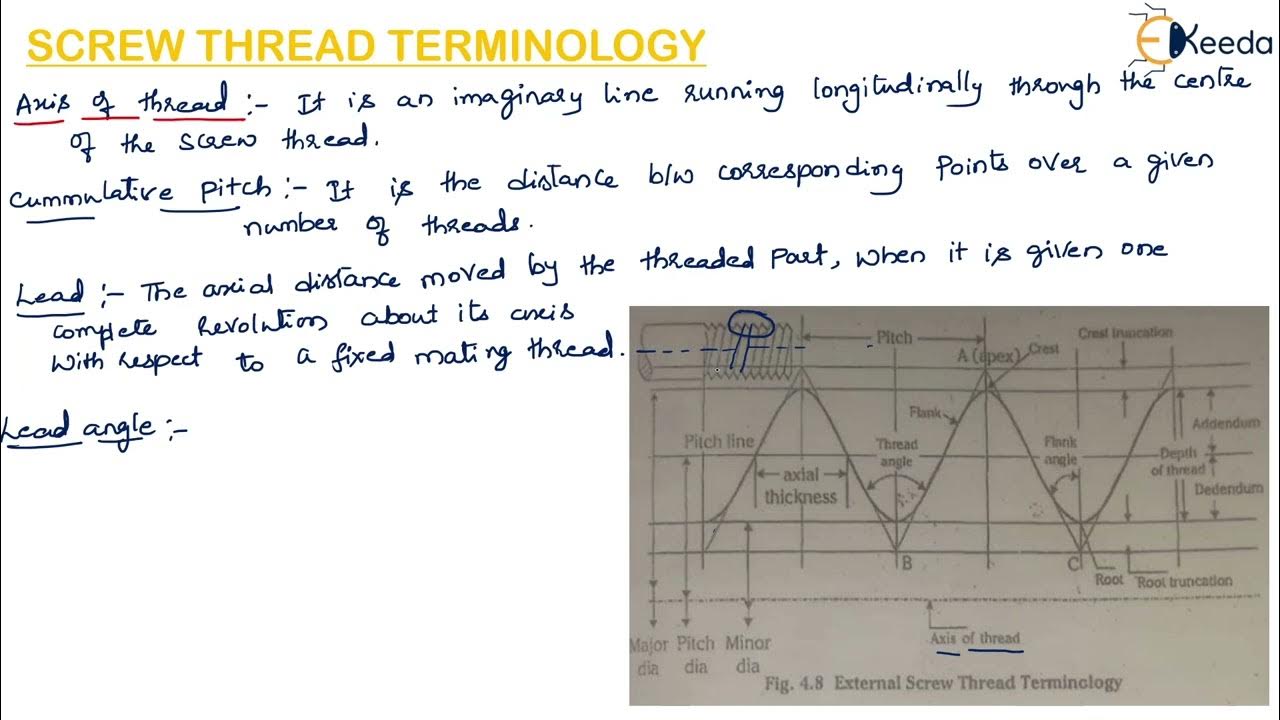 SCREW THREAD TERMINOLOGY
EKeeda
Axis of thread :- It is an imaginary line running longitudinally through the centre
of the screw thread.
Cummulative Pitch :- It is the distance b/w corresponding Points over a given
number of threads.
Lead :- The axial distance moved by the threaded Part, when it is given one
complete Revolution about its axis
With respect to a fixed mating thread.
Lead angle :-
Pitch
Crest truncation
A (apex)
Crest
Flank
Addendum
Pitch line
Thread
angle
Flank
angle
Depth
of thread
axial
thickness
Dedendum
B
C
Root
Root truncation
Axis of thread
Major Pitch Minor
dia dia dia
Fig. 4.8 External Screw Thread Terminology